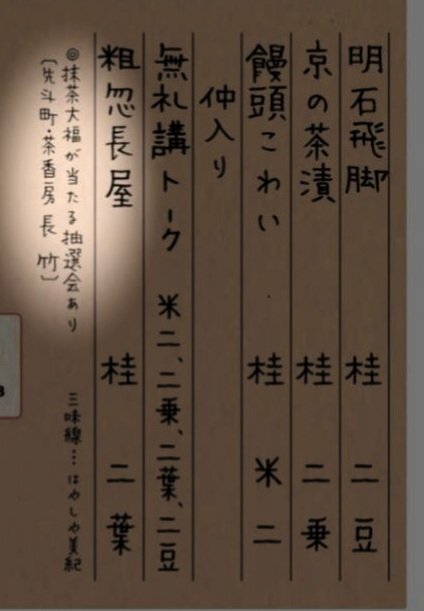 明石飛脚 桂 二豆
京の茶漬 桂 二乗
饅頭こわい 桂 米二
仲入り
無礼講トーク 米二、二乗、二葉、二豆
粗忽長屋 桂 二葉
◎抹茶大福が当たる抽選会あり 三味線…はやしや美紀
〔先斗町・茶香房 長竹〕